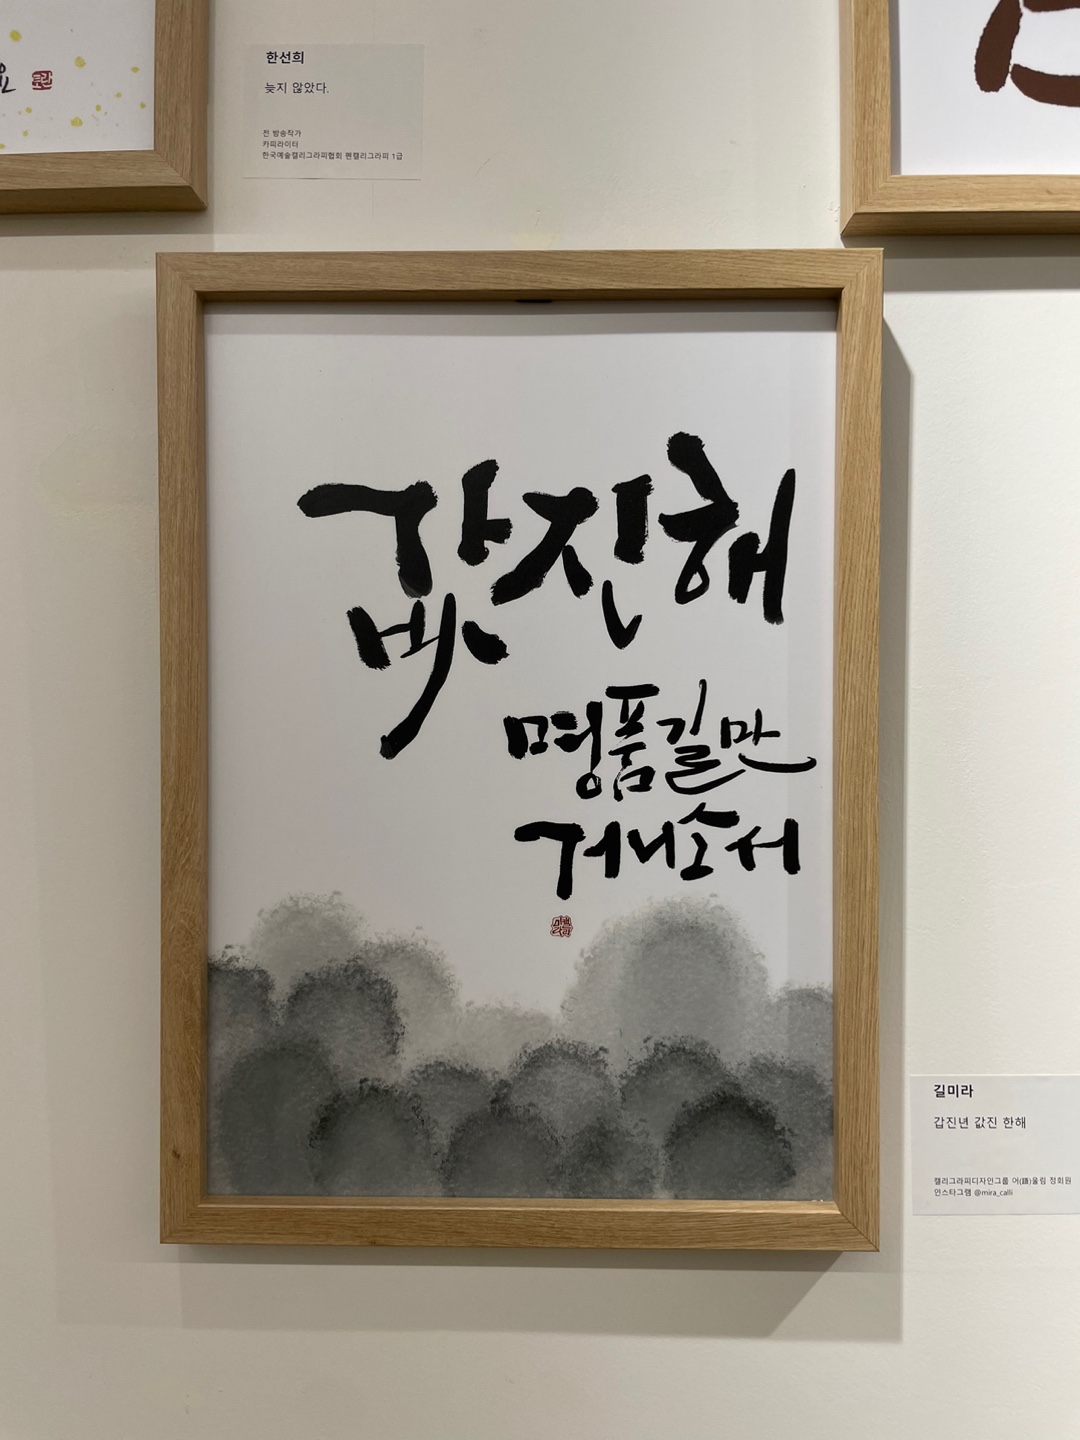 한선희
늦지 않았다.
전 방송작가
카피라이터
한국예술캘리그라피협회 펜캘리그라피 1급
값진해
명품길만
거니소서
길미라
갑진년 값진 한해
캘리그라피디자인그룹 어(語)울림 정회원
인스타그램 @mira_calli